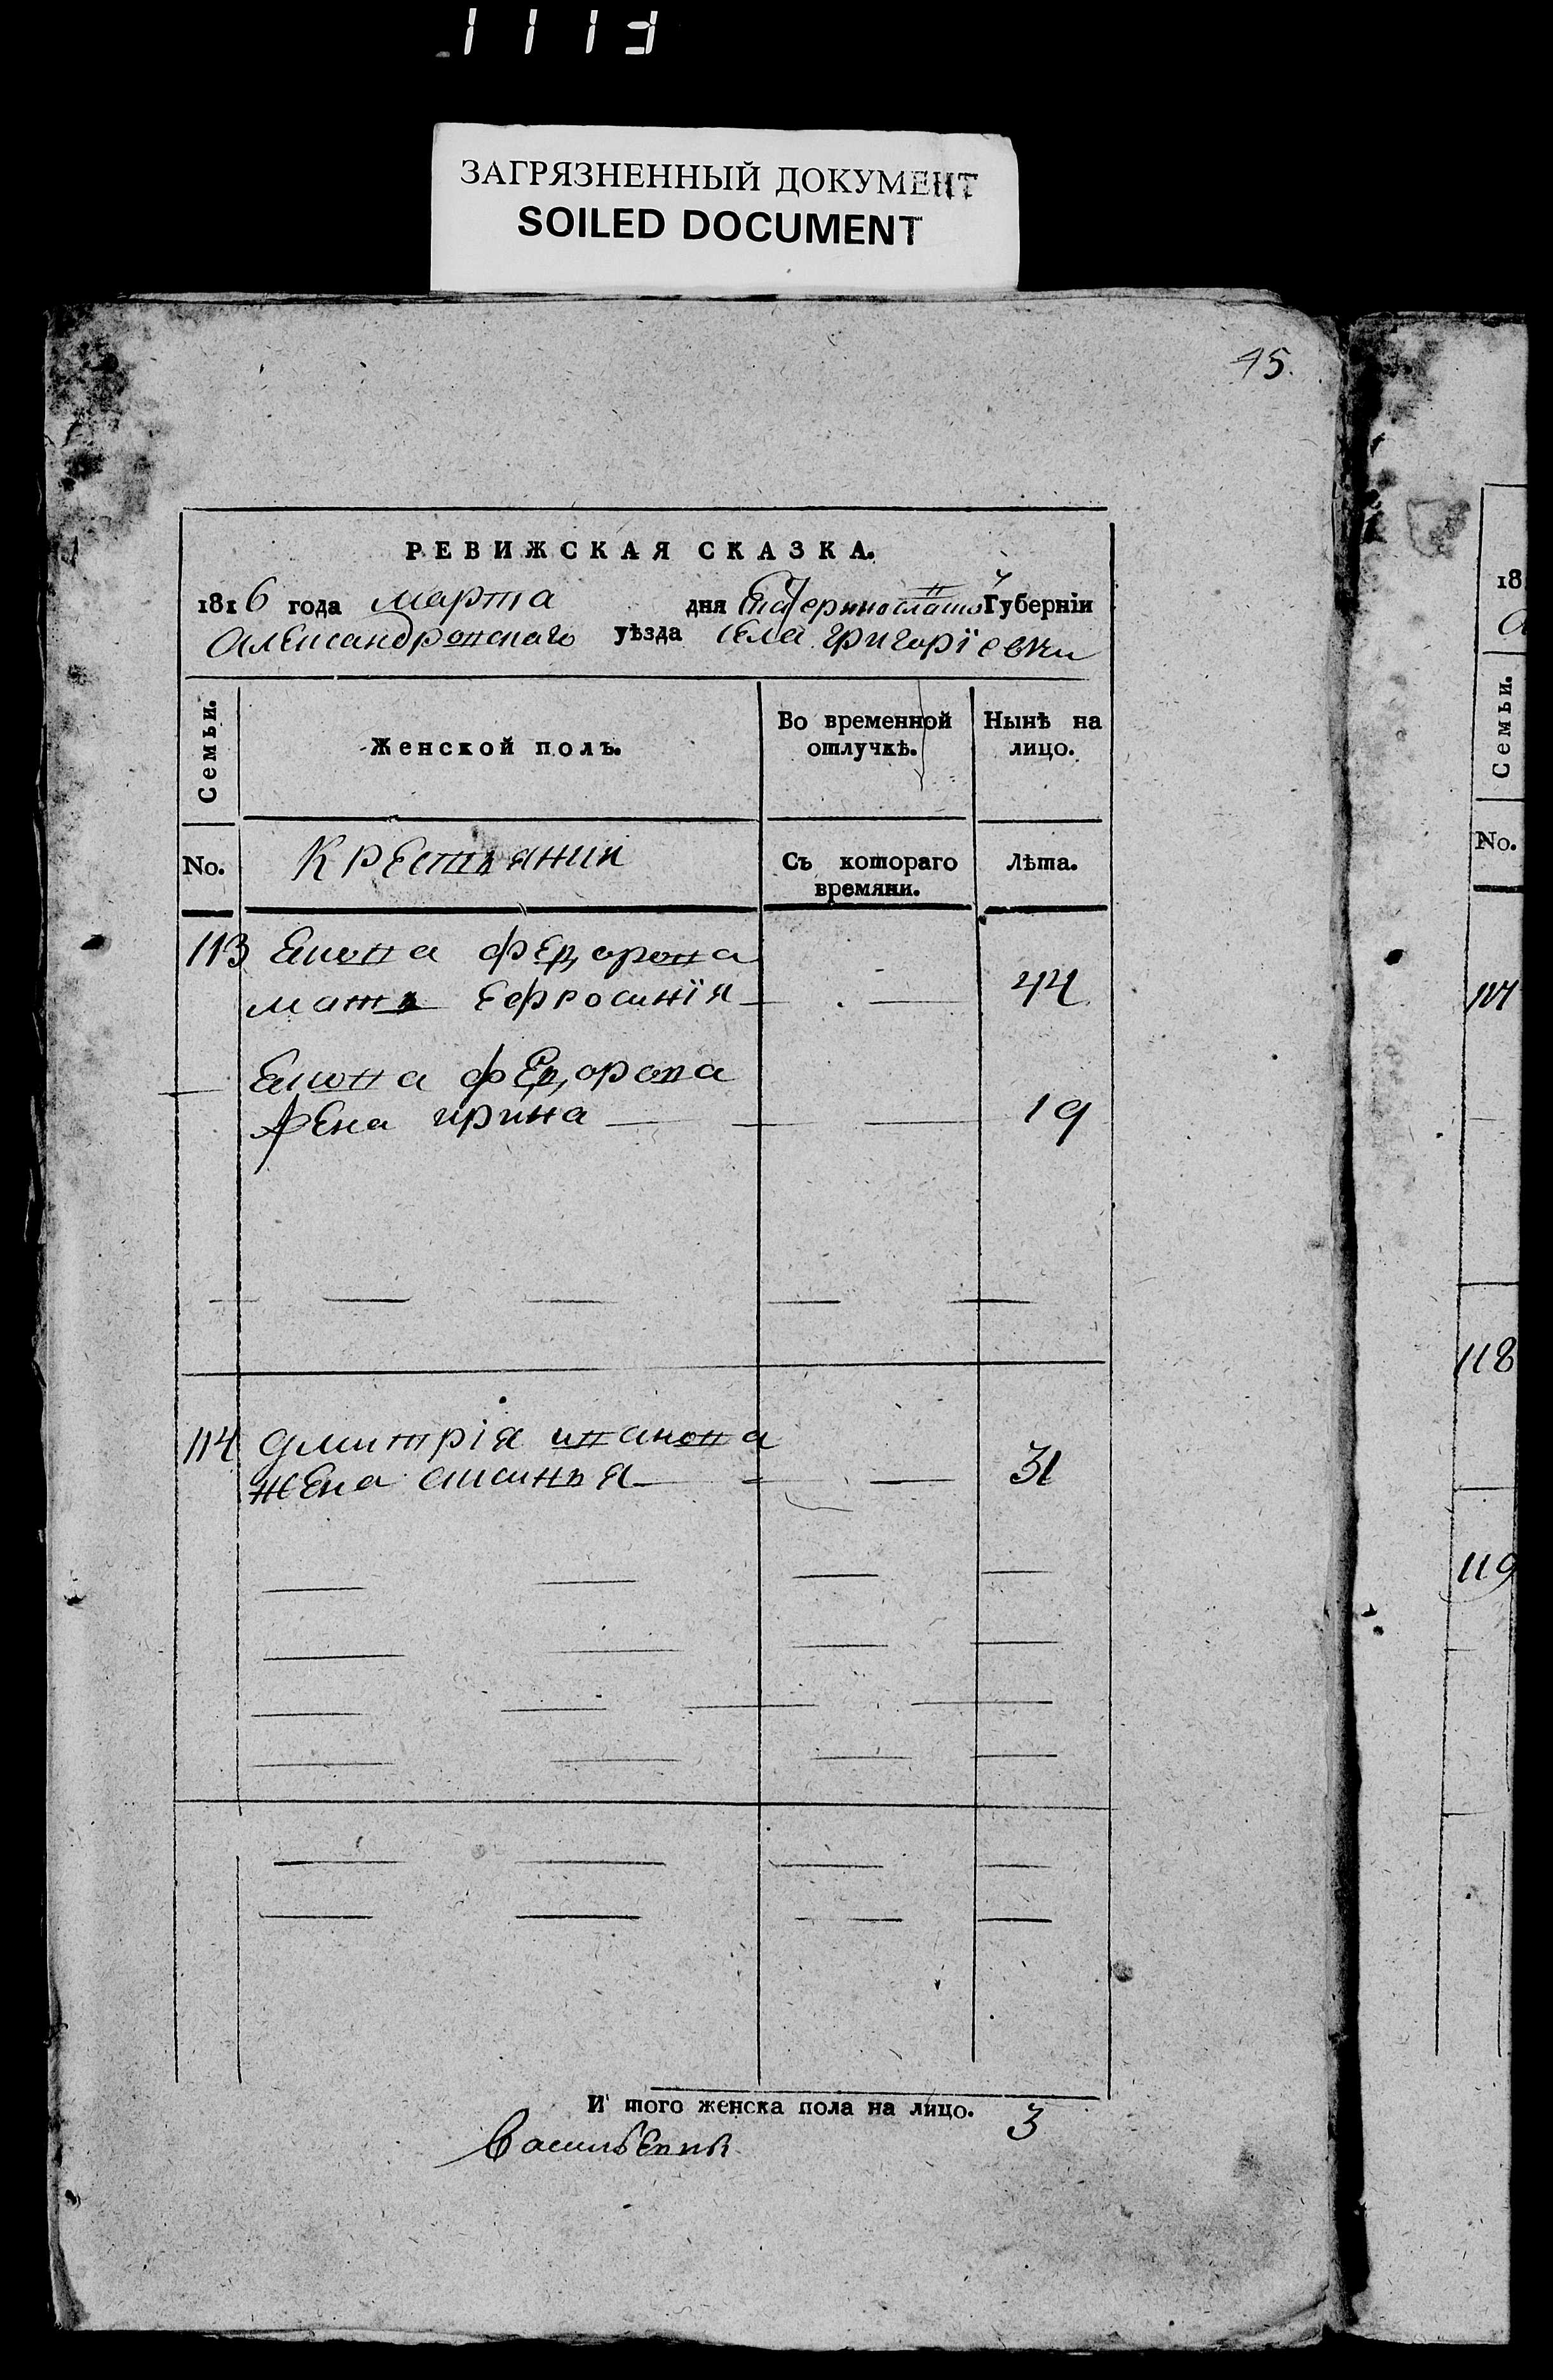 1113
ЗАГРЯЗНЕННЫЙ ДОКУМЕНТ
SOILED DOCUMENT
45.
РЕВИЖСКАЯ СКАЗКА.
1816 года марта дня Екатеринославской Губерніи
Александровскаго уѣзда села григоріевки
Семьи.
Женской полъ.
Во временной отлучкѣ.
Нынѣ на лицо.
No.
Крестьянки
Съ котораго времяни.
Лѣта.
113 федорова
мать Ефросинія 44
федорова
жена ирина 19
114 дмитрія иванова
жена аксинья 31
И того женска пола на лицо. 3
18
Семьи.
No.
118
119